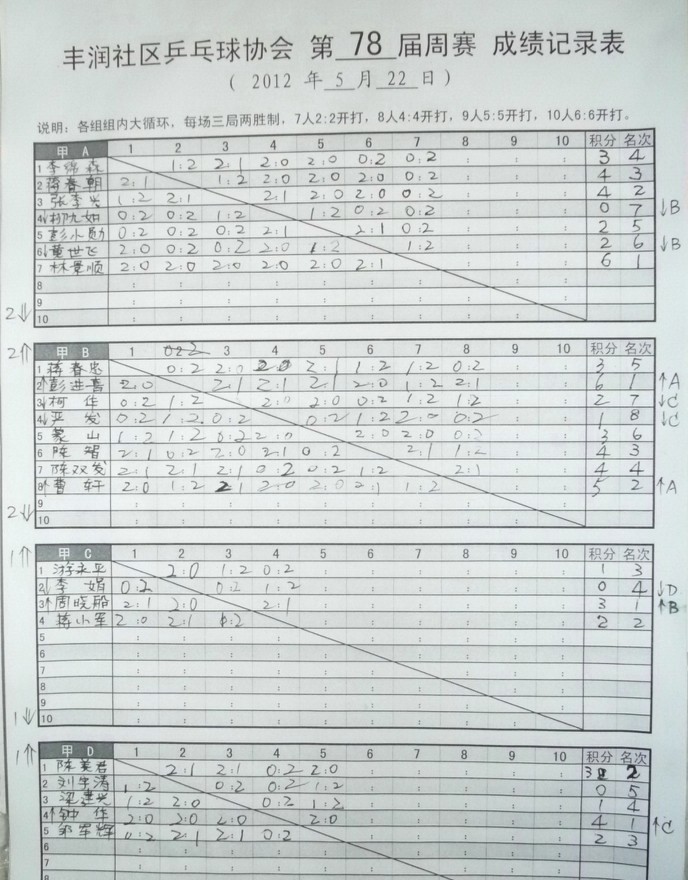 丰润社区乒乓球协会 第 78 届周赛 成绩记录表
( 2012 年 5 月 22 日 )
说明：各组组内大循环，每场三局两胜制，7人2:2开打，8人4:4开打，9人5:5开打，10人6:6开打。
甲 A 1 2 3 4 5 6 7 8 9 10 积分 名次
1 1:2 2:1 2:0 2:0 0:2 0:2 : : : 3 4
2 蒋春朝 2:1 1:2 2:0 2:0 2:0 0:2 : : : 4 3
3 张李兴 1:2 2:1 2:1 2:0 2:0 0:2 : : : 4 2
4↓ 0:2 0:2 1:2 1:2 0:2 0:2 : : : 0 7 ↓B
5 彭小勋 0:2 0:2 0:2 2:1 2:1 0:2 : : : 2 5
6↓ 董世飞 2:0 0:2 0:2 2:0 1:2 1:2 : : : 2 6 ↓B
7 林景顺 2:0 2:0 2:0 2:0 2:0 2:1 : : : 6 1
8 : : : : : : : : :
9 : : : : : : : : :
2⇓ 10 : : : : : : : : :
2⇑ 甲 B 1 3 4 5 6 7 8 9 10 积分 名次
1 蒋春忠 0:2 2:0 2:0 2:1 1:2 1:2 0:2 : : 3 5
2↑ 彭进喜 2:0 2:1 2:1 2:1 2:0 1:2 2:1 : : 6 1 ↑A
3↓ 柯华 0:2 1:2 2:0 2:0 0:2 1:2 1:2 : : 2 7 ↓C
4↓ 严发 0:2 1:2 0:2 0:2 1:2 2:0 0:2 : : 1 8 ↓C
5 蒙山 1:2 1:2 0:2 2:0 2:0 2:0 0:2 : : 3 6
6 陈智 2:1 0:2 2:0 2:1 0:2 2:1 1:2 : : 4 3
7 陈双发 2:1 2:1 2:1 0:2 0:2 1:2 2:1 : : 4 4
8↑ 曹轩 2:0 1:2 2:1 2:0 2:0 2:1 1:2 : : 5 2 ↑A
9 : : : : : : : : :
2⇓ 10 : : : : : : : : :
1⇑ 甲 C 1 2 3 4 5 6 7 8 9 10 积分 名次
1 游永平 2:0 1:2 0:2 : : : : : : 1 3
2↓ 李娟 0:2 0:2 1:2 : : : : : : 0 4 ↓D
3↑ 周晓船 2:1 2:0 2:1 : : : : : : 3 1 ↑B
4 蒋小军 2:0 2:1 0:2 : : : : : : 2 2
5 : : : : : : : : :
6 : : : : : : : : :
7 : : : : : : : : :
8 : : : : : : : : :
9 : : : : : : : : :
1⇓ 10 : : : : : : : : :
1⇑ 甲 D 1 2 3 4 5 6 7 8 9 10 积分 名次
1 陈美君 2:1 2:1 0:2 2:0 : : : : : 3 2
2 刘宇涛 1:2 0:2 0:2 1:2 : : : : : 0 5
3 梁建兴 1:2 2:0 0:2 1:2 : : : : : 1 4
4↑ 钟华 2:0 2:0 2:0 2:0 : : : : : 4 1 ↑C
5 邹军辉 0:2 2:1 2:1 0:2 : : : : : 2 3
6 : : : : : : : : :
7 : : : : : : : : :
8